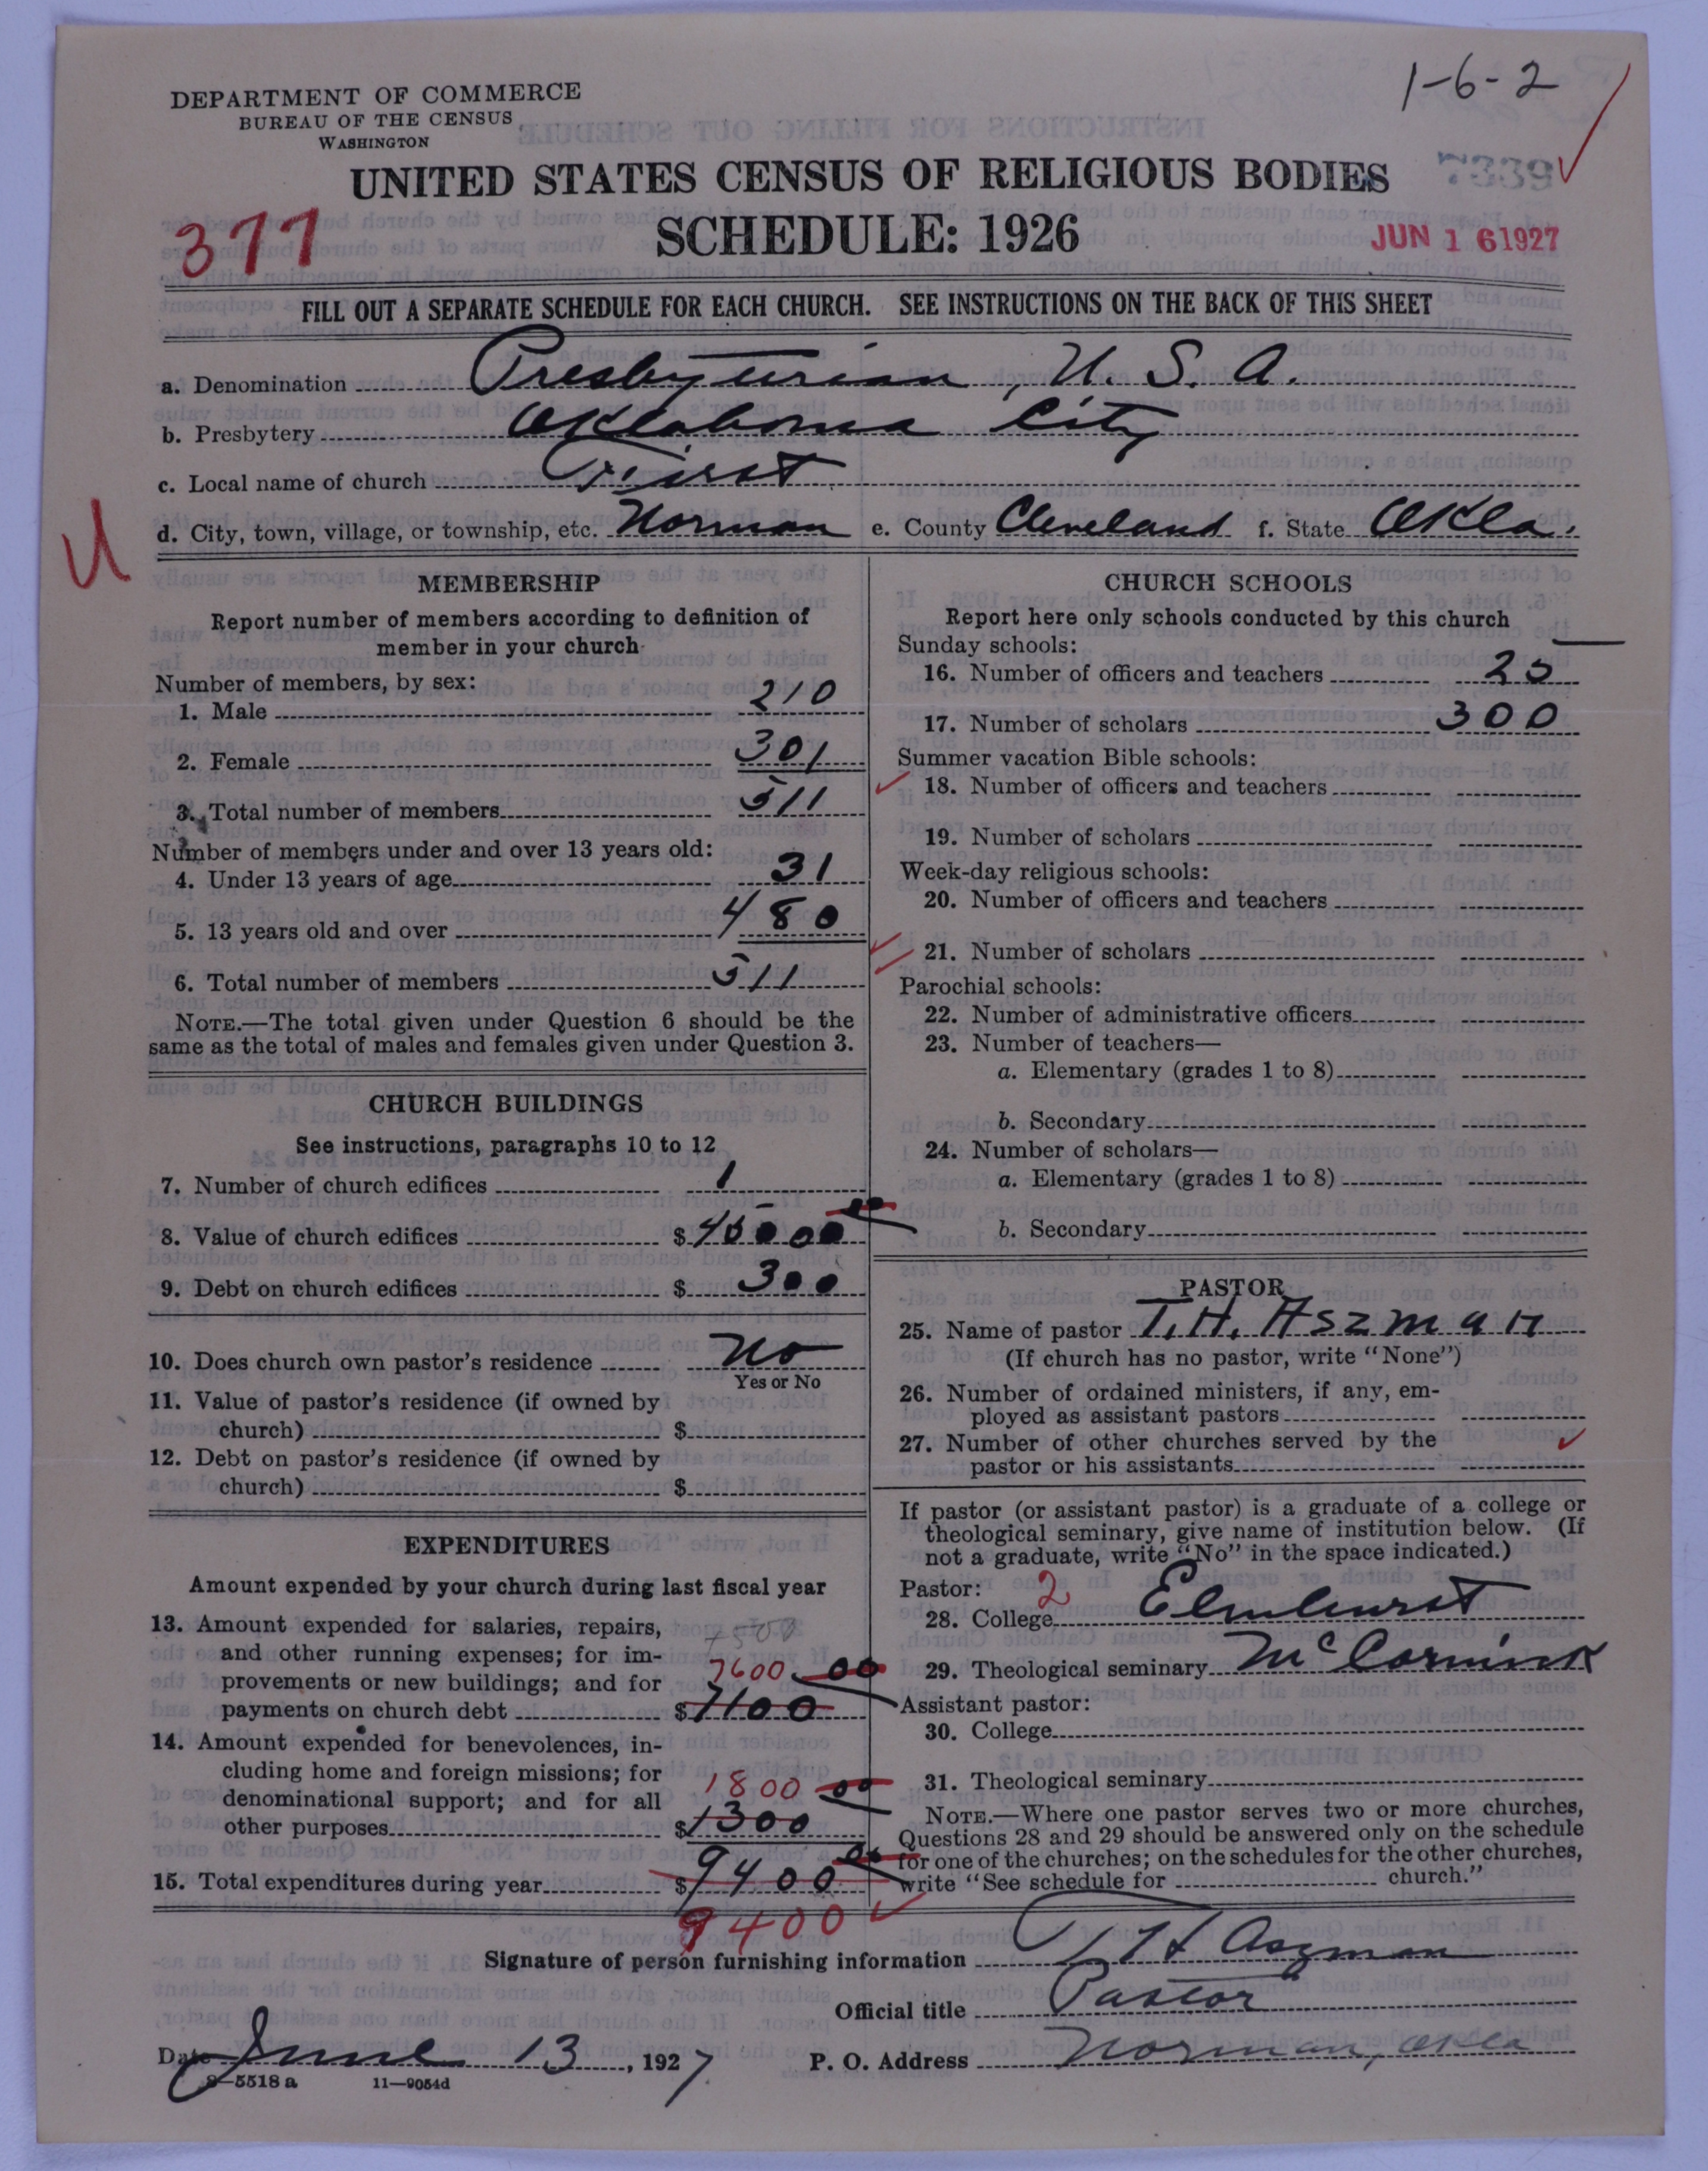 1-6-2
DEPARTMENT OF COMMERCE
BUREAU OF THE CENSUS
WASHINGTON
UNITED STATES CENSUS OF RELIGIOUS BODIES
7339
SCHEDULE: 1926
377
JUN 16 1927
FILL OUT A SEPARATE SCHEDULE FOR EACH CHURCH. SEE INSTRUCTIONS ON THE BACK OF THIS SHEET
a. Denomination Presbyterian, U. S. A.
b. Presbytery Oklahoma City
c. Local name of church First
d. City, town, village, or township, etc. Norman e. County Cleveland f. State Okla.
U
MEMBERSHIP
Report number of members according to definition of
member in your church
Number of members, by sex:
1. Male 210
2. Female 301
3. Total number of members 511
Number of members under and over 13 years old:
4. Under 13 years of age 31
5. 13 years old and over 480
6. Total number of members 511
NOTE.—The total given under Question 6 should be the
same as the total of males and females given under Question 3.
CHURCH BUILDINGS
See instructions, paragraphs 10 to 12
7. Number of church edifices 1
8. Value of church edifices $45000 00
9. Debt on church edifices $ 300
10. Does church own pastor's residence No
Yes or No
11. Value of pastor's residence (if owned by
church) $
12. Debt on pastor's residence (if owned by
church) $
EXPENDITURES
Amount expended by your church during last fiscal year
13. Amount expended for salaries, repairs,
and other running expenses; for im-
provements or new buildings; and for 7600 00
payments on church debt $7100
14. Amount expended for benevolences, in-
cluding home and foreign missions; for
denominational support; and for all 1800 00
other purposes $1300
15. Total expenditures during year $9400 00
9400
CHURCH SCHOOLS
Report here only schools conducted by this church
Sunday schools:
16. Number of officers and teachers 25
17. Number of scholars 300
Summer vacation Bible schools:
18. Number of officers and teachers
19. Number of scholars
Week-day religious schools:
20. Number of officers and teachers
21. Number of scholars
Parochial schools:
22. Number of administrative officers
23. Number of teachers—
a. Elementary (grades 1 to 8)
b. Secondary
24. Number of scholars—
a. Elementary (grades 1 to 8)
b. Secondary
PASTOR
25. Name of pastor T. H. Aszman
(If church has no pastor, write "None")
26. Number of ordained ministers, if any, em-
ployed as assistant pastors
27. Number of other churches served by the
pastor or his assistants
If pastor (or assistant pastor) is a graduate of a college or
theological seminary, give name of institution below. (If
not a graduate, write "No" in the space indicated.)
Pastor: 2
28. College Elmhurst
29. Theological seminary McCormick
Assistant pastor:
30. College
31. Theological seminary
NOTE.—Where one pastor serves two or more churches,
Questions 28 and 29 should be answered only on the schedule
for one of the churches; on the schedules for the other churches,
write "See schedule for church."
Signature of person furnishing information T H Aszman
Official title Pastor
Date June 13, 1927 P. O. Address Norman, Okla
8—5518 a 11—9054d